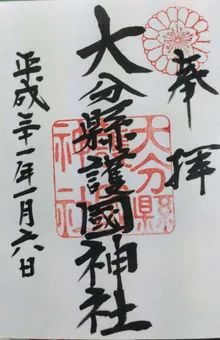 奉拝
大分縣護國神社
平成三十一年一月六日
大分縣
神社